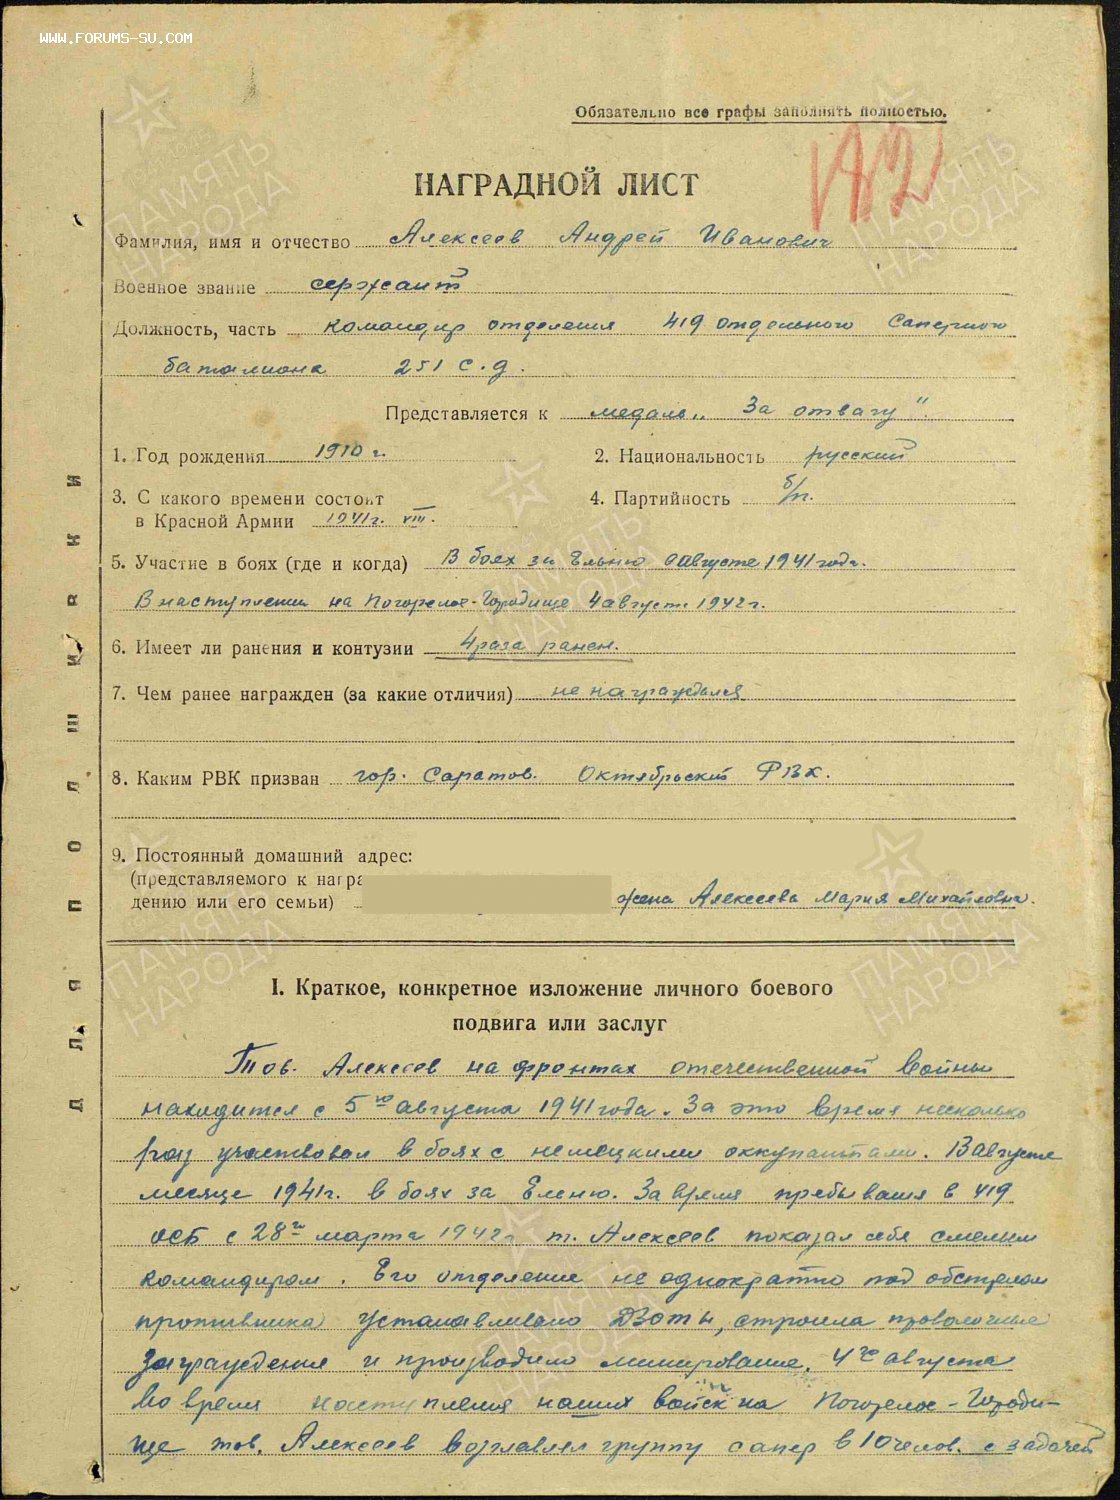 WWW.FORUMS-SU.COM
Обязательно все графы заполнять полностью.
НАГРАДНОЙ ЛИСТ
Фамилия, имя и отчество Алексеев Андрей Иванович
Военное звание сержант
Должность, часть командир отделения 419 отдельного саперного
батальона 251 с.д.
Представляется к медаль „За отвагу".
1. Год рождения 1910 г.
2. Национальность русский
3. С какого времени состоит
в Красной Армии 1941г. VIII.
4. Партийность б/п.
5. Участие в боях (где и когда) В боях за Ельню в августе 1941 года.
В наступлении на Погорелое-Городище 4 августа 1942 г.
6. Имеет ли ранения и контузии 4 раза ранен.
7. Чем ранее награжден (за какие отличия) не награждался
8. Каким РВК призван гор. Саратов. Октябрьский РВК.
9. Постоянный домашний адрес:
(представляемого к награ
дению или его семьи) жена Алексеева Мария Михайловна.
Для подшивки
I. Краткое, конкретное изложение личного боевого
подвига или заслуг
Тов. Алексеев на фронтах отечественной войны
находится с 5го августа 1941 года. За это время несколько
раз участвовал в боях с немецкими оккупантами. В августе
месяце 1941г. в боях за Еленю. За время пребывания в 419
ОСБ с 28го марта 1942 г. т. Алексеев показал себя смелым
командиром. Его отделение не однократно под обстрелом
противника устанавливало ДЗОТы, строила проволочные
заграждения и производило минирование. 4го августа
во время наступления наших войск на Погорелое-Городи-
ще тов. Алексеев возглавлял группу сапер в 10 челов. с задачей
ПАМЯТЬ НАРОДА